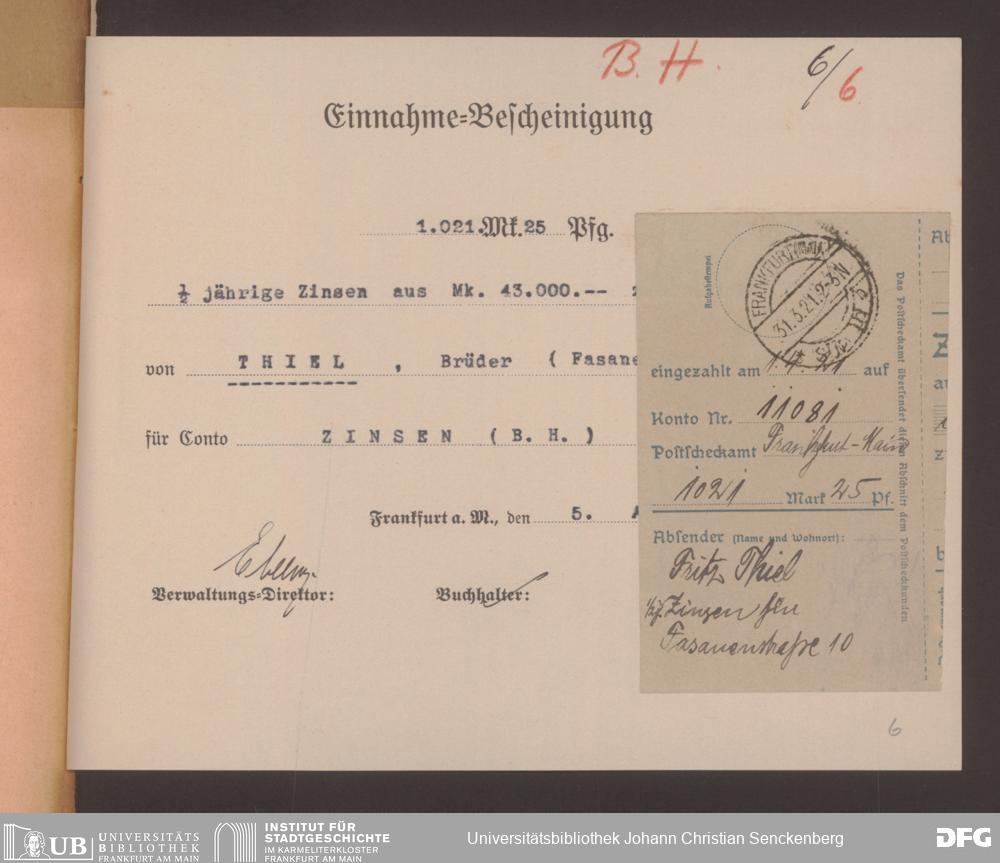 B. H.
6/6
Einnahme=Bescheinigung
1.021.Mk.25 Pfg.
½ jährige Zinsen aus Mk. 43.000.--
von THIEL , Brüder ( Fasane
für Conto ZINSEN ( B. H. )
Frankfurt a. M., den 5. A
Verwaltungs=Direktor:
Buchhalter:
Aufgabestempel
FRANKFURT (MAIN)
31.3.21.2-3N
eingezahlt am 1.4.21 auf
Konto Nr. 11081
Postscheckamt Frankfurt-Main
1021 Mark 25 Pf.
Absender (Name und Wohnort):
Fritz Thiel
½j. Zinsen für
Fasanenstraße 10
Das Postscheckamt übersendet diesen Abschnitt dem Postscheckkunden
Ab
Z
au
6
UB UNIVERSITÄTS
BIBLIOTHEK
FRANKFURT AM MAIN
INSTITUT FÜR
STADTGESCHICHTE
IM KARMELITERKLOSTER
FRANKFURT AM MAIN
Universitätsbibliothek Johann Christian Senckenberg
DFG